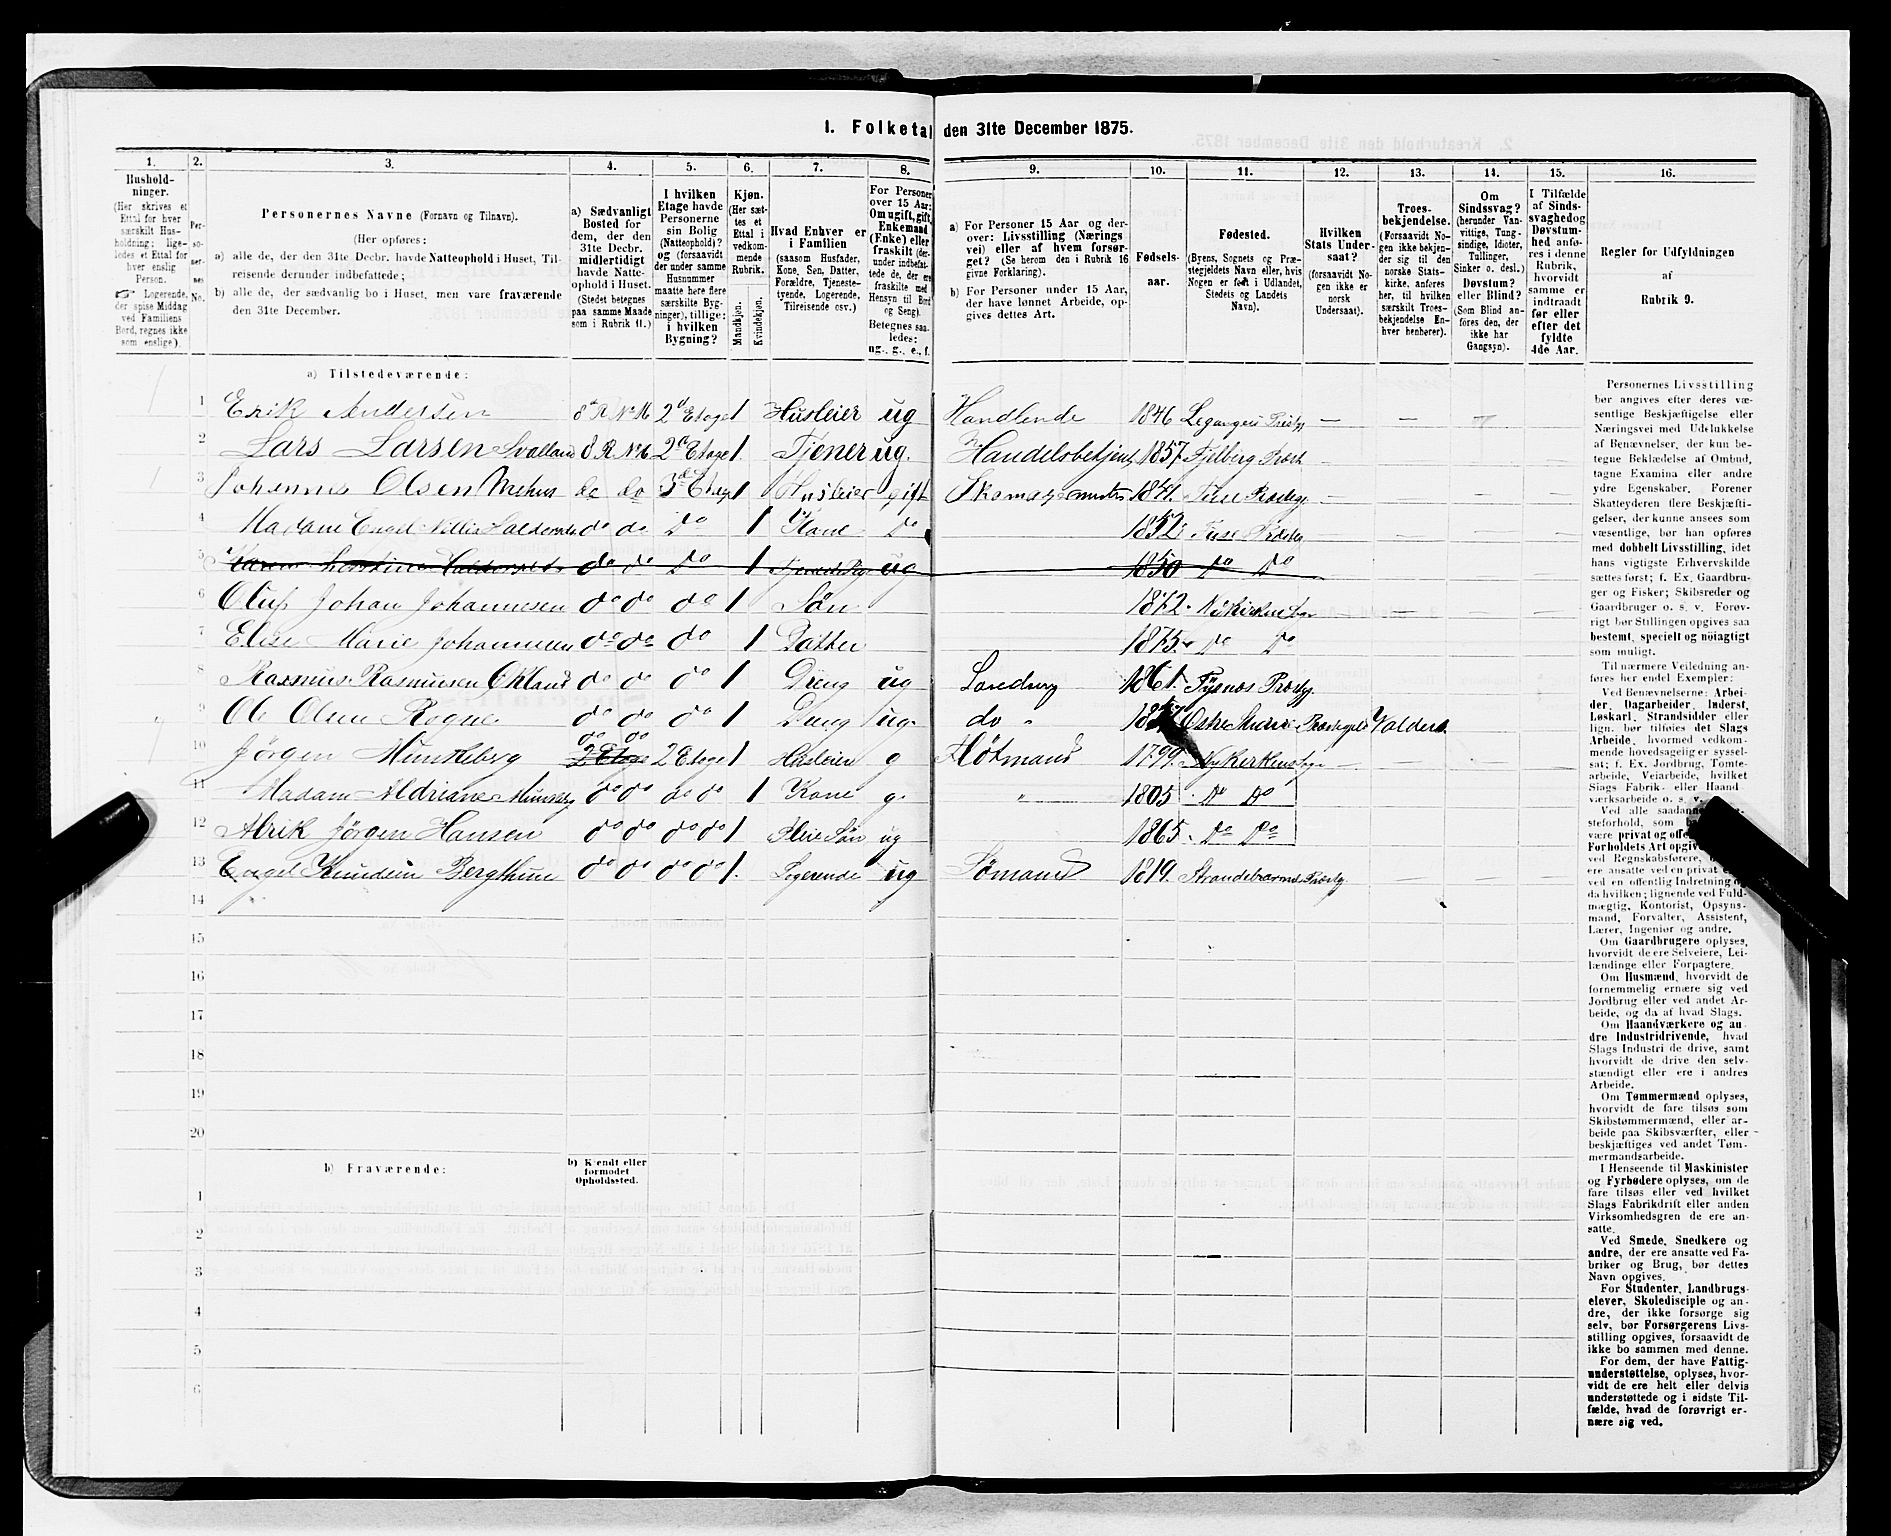 1. Folketal den 31te December 1875.
1. 2. 3. 4. 5. 6. 7. 8. 9. 10. 11. 12. 13. 14. 15. 16.
Hushold-
ninger.
(Her skrives et
Ettal for hver
særskilt Hus-
holdning; lige-
ledes et Ettal for
hver enslig
Person.
☞ Logerende,
der spise Middag
ved Familiens
Bord, regnes ikke
som enslige).
Per-
so-
ner-
nes
No.
Personernes Navne (Fornavn og Tilnavn).
(Her opføres:
a) alle de, der den 31te Decbr. havde Natteophold i Huset, Til-
reisende derunder indbefattede;
b) alle de, der sædvanlig bo i Huset, men vare fraværende
den 31te December.
a) Sædvanligt
Bosted for
dem, der den
31te Decbr.
midlertidigt
havde Natte-
ophold i Huset.
(Stedet betegnes
paa samme Maade
som i Rubrik 11.)
I hvilken
Etage havde
Personerne
sin Bolig
(Natteophold)?
og (forsaavidt
der under samme
Husnummer
maatte høre flere
særskilte Byg-
ninger), tillige:
i hvilken
Bygning?
Kjøn.
(Her sæt-
tes et
Ettal i
vedkom-
mende
Rubrik.
Mandkjøn.
Kvindekjøn.
Hvad Enhver er
i Familien
(saasom Husfader,
Kone, Søn, Datter,
Forældre, Tjeneste-
tyende, Logerende,
Tilreisende osv.)
For Personer
over 15 Aar:
Om ugift, gift,
Enkemand
(Enke) eller
fraskilt (der-
under indbefat-
tede de, der ere
fraskilte med
Hensyn til Bord
og Seng).
Betegnes saa-
ledes:
ug., g., e., f.
a) For Personer 15 Aar og der-
over: Livsstilling (Nærings-
vei) eller af hvem forsør-
get? (Se herom den i Rubrik 16
givne Forklaring).
b) For Personer under 15 Aar,
der have lønnet Arbeide, op-
gives dettes Art.
Fødsels-
aar.
Fødested.
(Byens, Sognets og Præ-
stegjeldets Navn eller, hvis
Nogen er født i Udlandet,
Stedets og Landets
Navn).
Hvilken
Stats Under-
saat?
(forsaavidt No-
gen ikke er
norsk
Undersaat).
Troes-
bekjendelse.
(Forsaavidt No-
gen ikke bekjen-
der sig til den
norske Stats-
kirke, anføres
her, til hvilken
særskilt Troes-
bekjendelse En-
hver henhører).
Om
Sindssvag?
(herunder Van-
vittige, Tung-
sindige, Idioter,
Tullinger,
Sinker o. desl.)
Døvstum?
eller Blind?
(Som Blind an-
føres den, der
ikke har
Gangsyn).
I Tilfælde
af Sinds-
svaghed og
Døvstum-
hed anfø-
res i denne
Rubrik,
hvorvidt
samme er
indtraadt
før eller
efter det
fyldte
4de Aar.
Regler for Udfyldningen
af
Rubrik 9.
a) Tilstedeværende:
1 1 Erik Andersen 8d R No 16 2d Etage 1 Husleier ug Handlende 1846 Legangers Prstg — — —
2 Lars Larsen Svolland 8 R No 16 2d Etage 1 Tjener ug. Handelsbetjent 1857 Fjelberg Præst — — —
1 3 Johannes Olsen Mehus do do 3d Etage 1 Husleier gift Skomagermester 1841. Præstg — — —
4 Madame Engel do do Do 1 Kone Do 1852 Præstg
5 do do Do 1 ug 1850 Do Do
6 Oluf Johan Johannesen do do do 1 Søn 1872. Nykirken
7 Elise Marie Johannesen do do do 1 Datter 1875. Do Do
8 Rasmus Rasmusen Økland do do do 1 Dreng ug Læredreng 1861. Tysnes Præstg.
9 Ole Olsen Rogne do do do 1 Dreng ug do " Præstegjeld Valders.
1 10 Jørgen Munkeberg do do 2 Etage 2 Etage 1 Husleier g 1799. Nykirken — — —
11 Madam Aldriane do do do do 1 Kone g. " 1805 Do Do
12 Alrik Jørgen Hansen do do do do 1 Pleie Søn ug 1865. Do Do
13 Engel Knudsen do do do do 1. Logerende ug Sømand 1819. Strandebarm Præstg. — — —
14
15
16
17
18
19
20
b) Fraværende:
b) Kjendt eller
formodet
Opholdssted.
1
2
3
4
5
6
Personernes Livsstilling
bør angives efter deres væ-
sentlige Beskjæftigelse eller
Næringsvei med Udelukkelse
af Benævnelser, der kun be-
tegne Beklædelse af Ombud,
tagne Examina eller andre
ydre Egenskaber. Forener
Skatteyderen flere Beskjæfti-
gelser, der kunne ansees som
væsentlige, bør han opføres
med dobbelt Livsstilling, idet
hans vigtigste Erhvervskilde
sættes først; f. Ex. Gaardbru-
ger og Fisker; Skibsreder og
Gaardbruger o. s. v. Forøv-
rigt bør Stillingen opgives saa
bestemt, specielt og nøiagtigt
som muligt.
Til nærmere Veiledning an-
føres her endel Exempler:
Ved Benævnelserne: Arbei-
der, Dagarbeider, Inderst,
Løskarl, Strandsidder eller
lign. bør tilføies det Slags
Arbeide, hvormed vedkom-
mende hovedsagelig er syssel-
sat; f. Ex. Jordbrug, Tomte-
arbeide, Veiarbeide, hvilket
Slags Fabrik- eller Haand-
værksarbeide o. s. v.
Ved alle saadanne
steforhold, som
være privat og
Forholdets Art
ved Regnskabsførere,
ere ansatte ved en privat
ved en offentlig Indretning og
da hvilken; lignende ved Fuld-
mægtig, Kontorist, Opsyns-
mand, Forvalter, Assistent,
Lærer, Ingeniør og andre.
Om Gaardbrugere oplyses,
hvorvidt de ere Selveiere, Lei-
lændinge eller Forpagtere.
Om Husmænd, hvorvidt de
fornemmelig ernære sig ved
Jordbrug eller ved andet Ar-
beide, og da af hvad Slags.
Om Haandværkere og an-
dre Industridrivende, hvad
Slags Industri de drive, samt
hvorvidt de drive den selv-
stændigt eller ere i andres
Arbeide.
Om Tømmermænd oplyses,
hvorvidt de fare tilsøs som
Skibstømmermænd, eller ar-
beide paa Skibsværfter, eller
beskjæftiges ved andet Tøm-
mermandsarbeide.
I Henseende til Maskinister
og Fyrbødere oplyses, om de
fare tilsøs eller ved hvilket
Slags Fabrikdrift eller anden
Virksomhedsgren de ere an-
satte.
Ved Smede, Snedkere og
andre, der ere ansatte ved Fa-
briker og Brug, bør dettes
Navn opgives.
For Studenter, Landbrugs-
elever, Skoledisciple og an-
dre, der ikke forsørge sig
selv, bør Forsørgerens Livs-
stilling opgives, forsaavidt de
ikke bo sammen med denne.
For dem, der have Fattig-
understøttelse, oplyses, hvor-
vidt de ere helt eller delvis
understøttede og i sidste Til-
fælde, hvad de forøvrigt er-
nære sig ved.